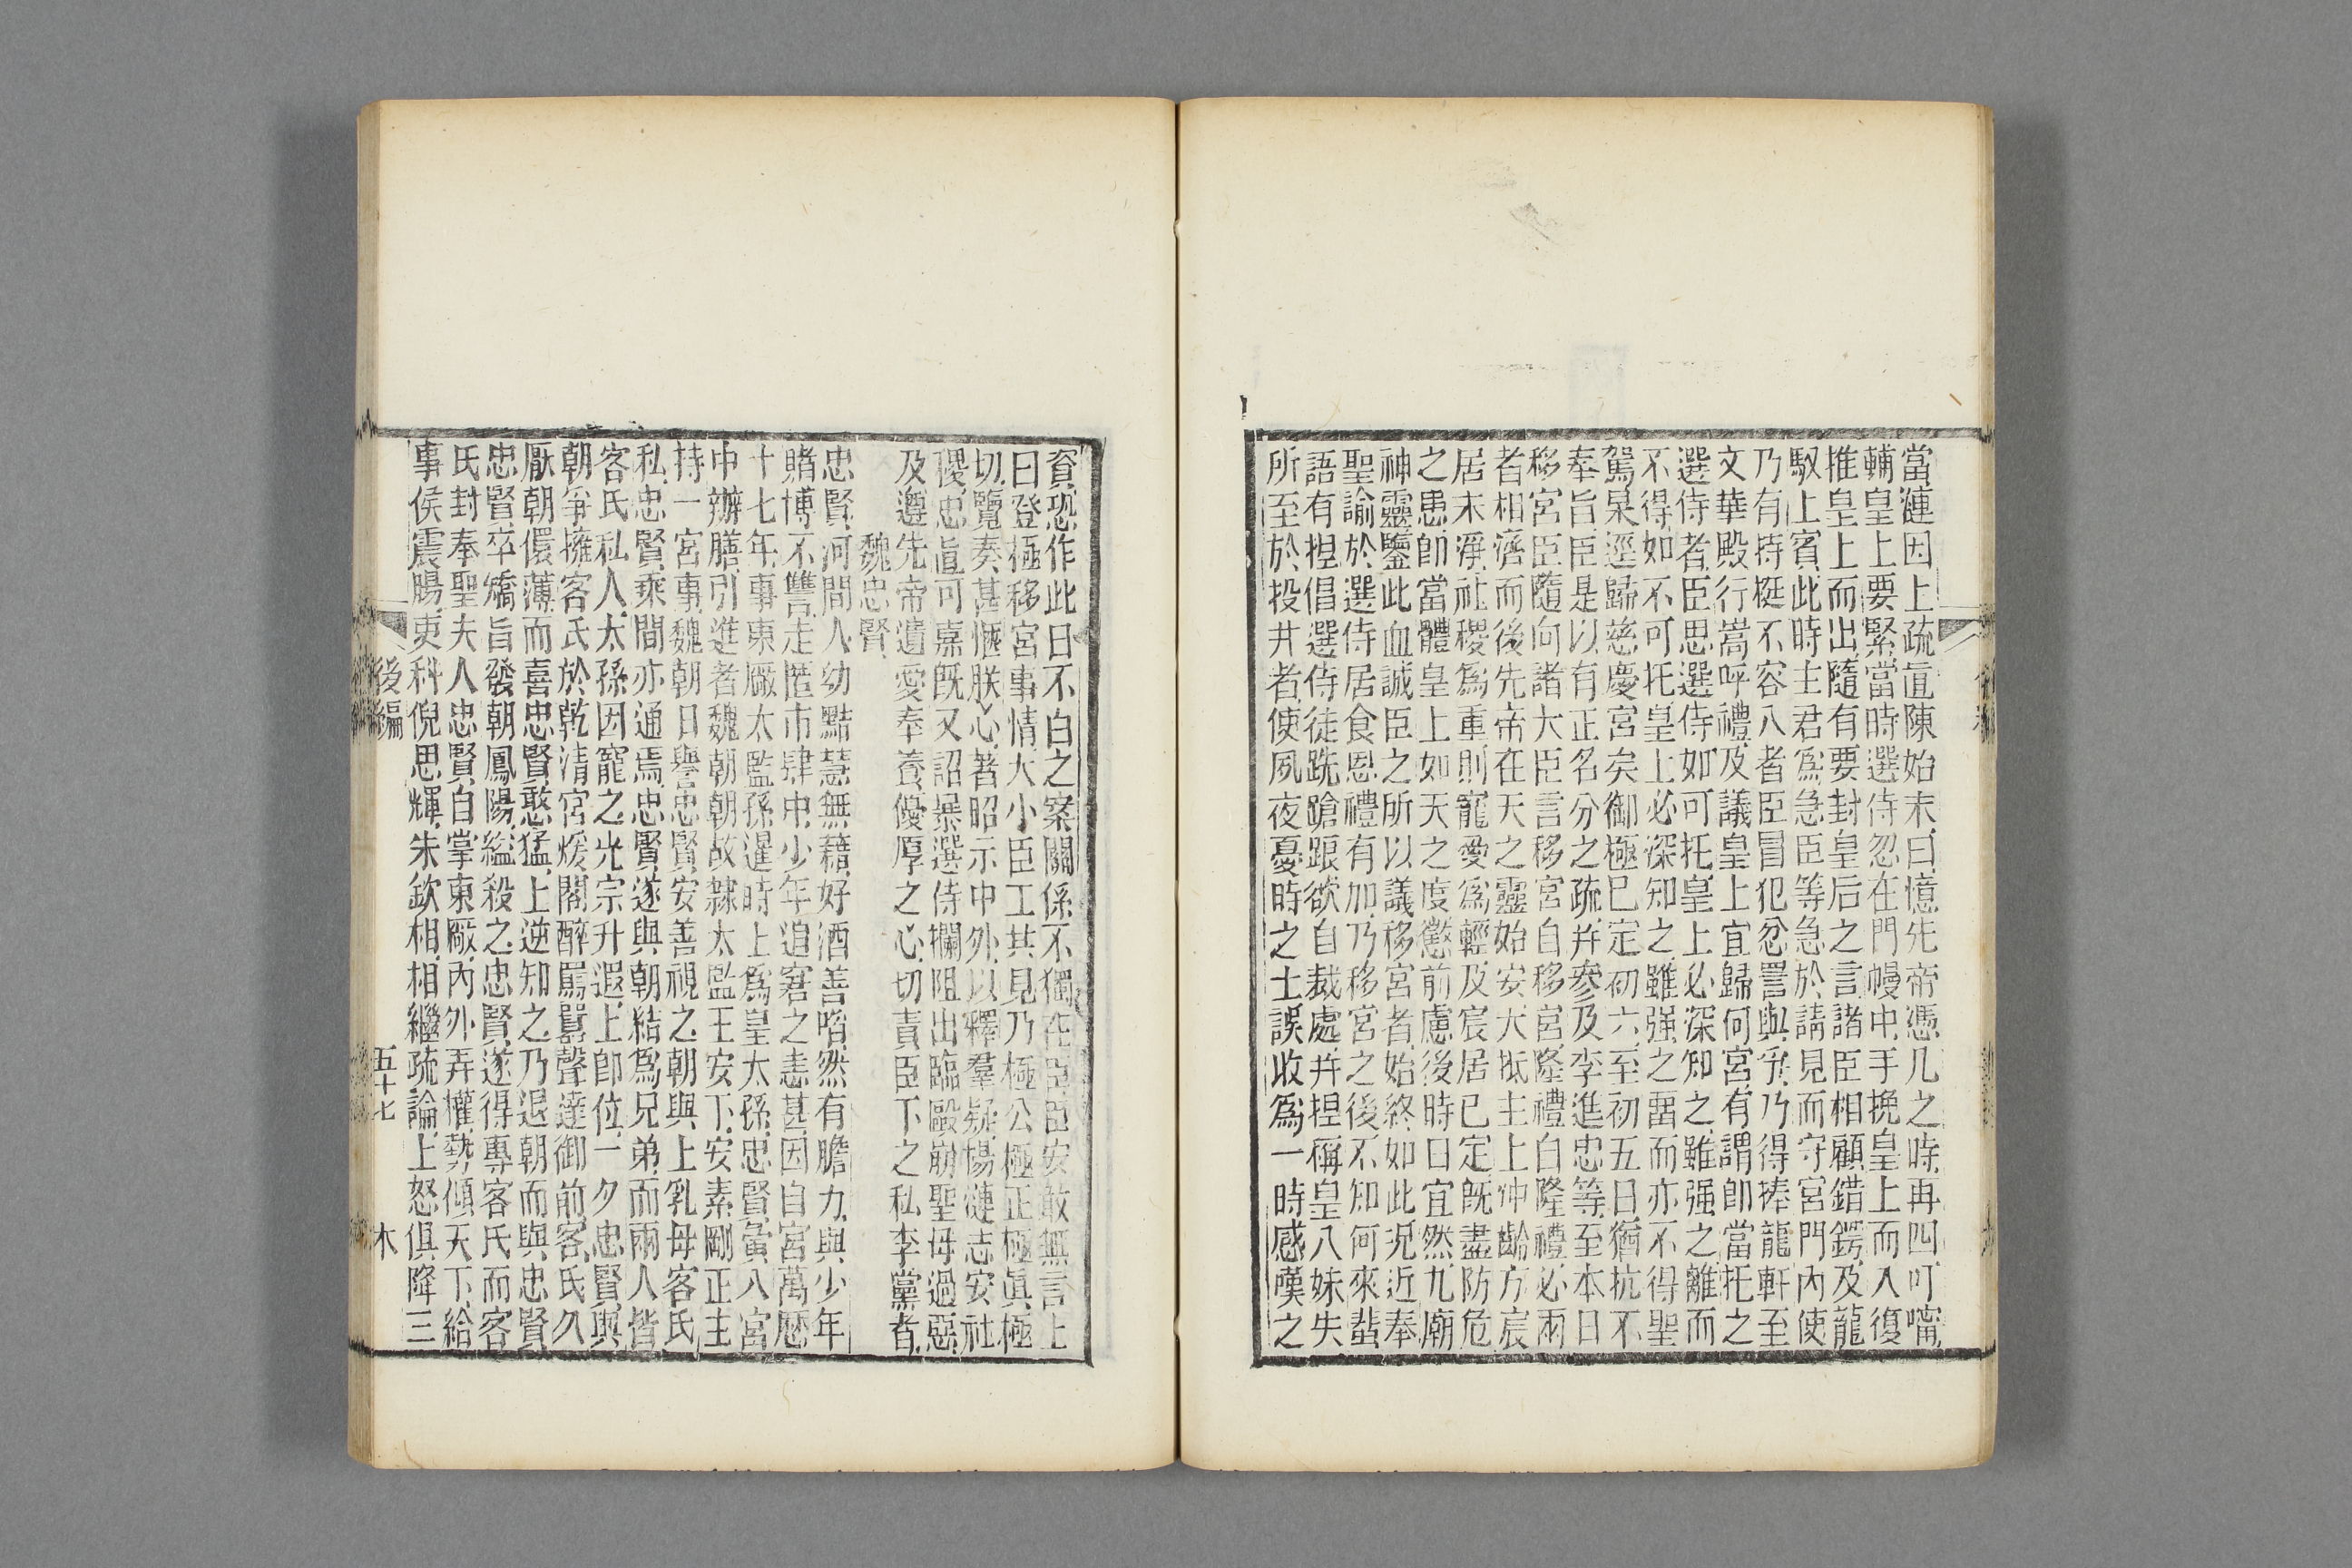 當漣因上疏直陳始末曰憶先帝憑几之時再四叮嚀
輔皇上要緊當時選侍忽在門幔中手挽皇上而入復
推皇上而出隨有要封皇后之言諸臣相顧錯愕及龍
馭上賓此時主君爲急臣等急於請見而守宮門內使
乃有持梃不容入者臣冒犯忿詈與爭乃得捧龍軒至
文華殿行嵩呼禮及議皇上宜歸何宮有謂卽當托之
選侍者臣思選侍如可托皇上必深知之雖强之離而
不得如不可托皇上必深知之雖强之畱而亦不得聖
駕杲逕歸慈慶宮矣御極已定初六至初五日猶抗不
奉旨臣是以有正名分之疏幷參及李進忠等至本日
移宮臣隨向諸大臣言移宮自移宮隆禮自隆禮必兩
者相濟而後先帝在天之靈始安大抵主上冲齡方宸
居未淨社稷爲重則寵愛爲輕及宸居已定旣盡防危
之患卽當體皇上如天之度懲前慮後時日宜然九廟
神靈鑒此血誠臣之所以議移宮者始終如此況近奉
聖諭於選侍居食恩禮有加乃移宮之後不知何來蜚
語有捏倡選侍徒跣踉蹌欲自裁處幷捏稱皇八妹失
所至於投井者使夙夜憂時之士誤收爲一時感嘆之
資恐作此日不白之案關係不獨在臣臣安敢無言上
曰登極移宮事情大小臣工共見乃極公極正極眞極
切覽奏甚愜朕心著昭示中外以釋羣疑楊漣志安社
稷忠直可嘉旣又詔暴選侍攔阻出臨毆崩聖母過惡
及遵先帝遺愛奉養優厚之心切責臣下之私李黨者
魏忠賢
忠賢河間人幼黠慧無藉好酒善啗然有膽力與少年
賭博不讐走匿市肆中少年追窘之恚甚因自宮萬歷
十七年事東厰太監孫暹時上爲皇太孫忠賢夤入宮
中辦膳引進者魏朝朝故隸太監王安下安素剛正主
持一宮事魏朝日譽忠賢安善視之朝與上乳母客氏
私忠賢乘間亦通焉忠賢遂與朝結爲兄弟而兩人皆
客氏私人太孫因寵之光宗升遐上卽位一夕忠賢與
朝爭擁客氏於乾清宮煖閣醉罵囂聲達御前客氏久
厭朝儇薄而喜忠賢憨猛上逆知之乃退朝而與忠賢
忠賢卒矯旨發朝鳳陽縊殺之忠賢遂得專客氏而客
氏封奉聖夫人忠賢自掌東厰內外弄權勢傾天下給
事侯震暘吏科倪思輝朱欽相相繼疏論上怒俱降三
後編
五十七
木